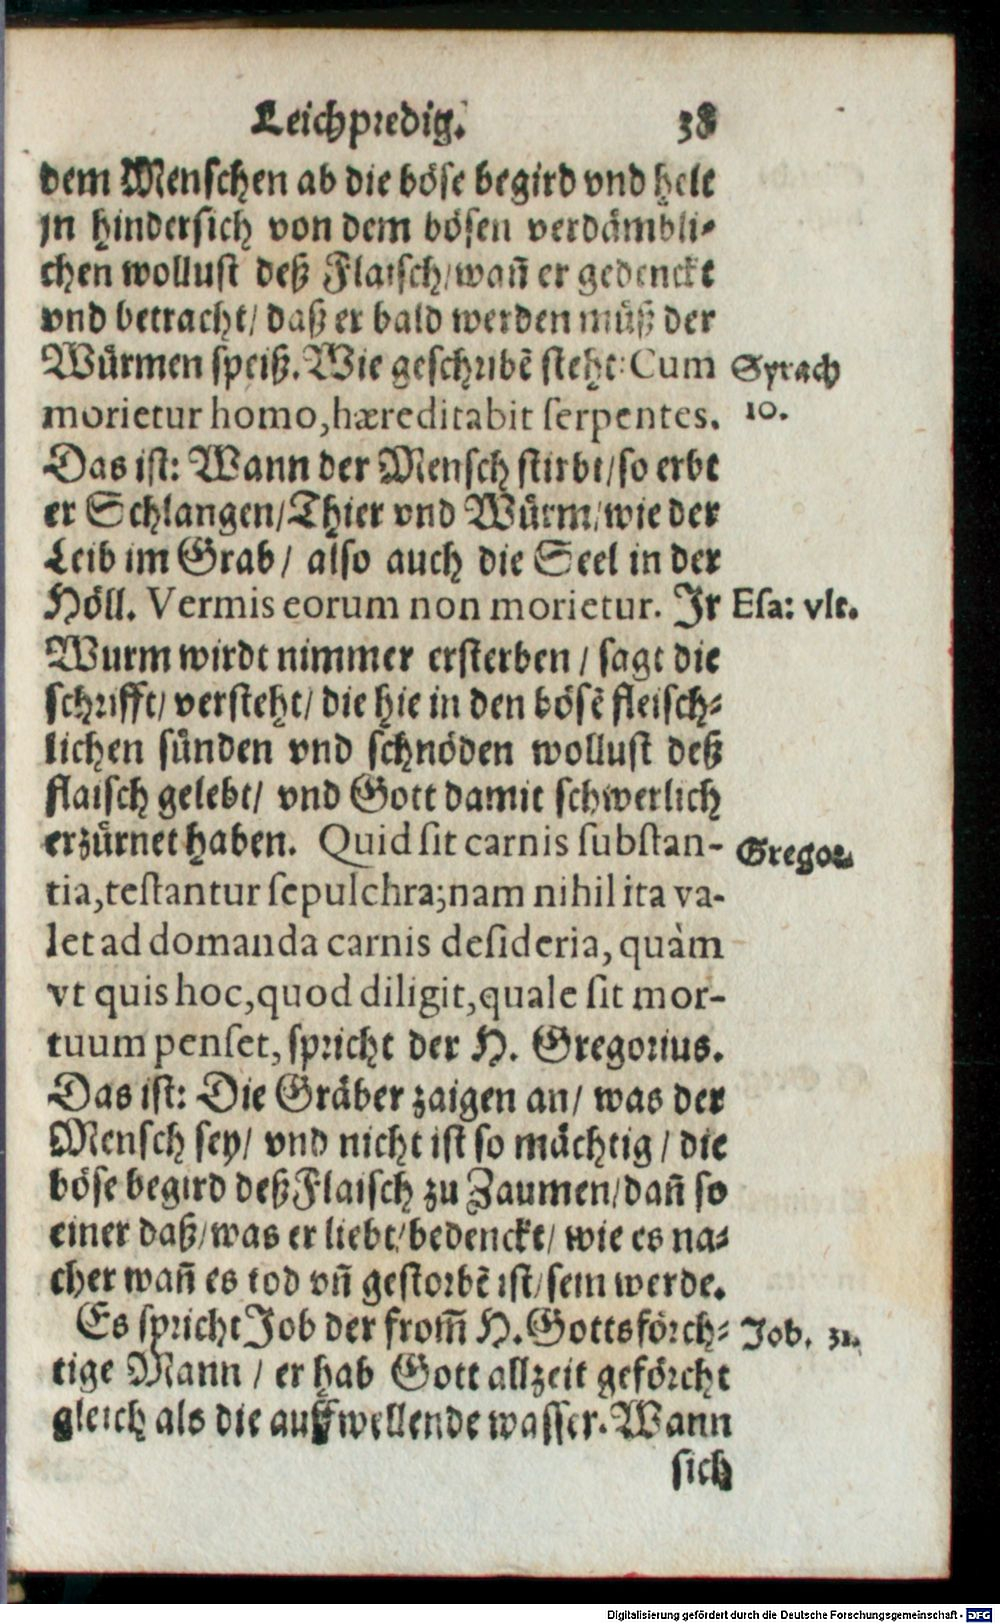 Leichpredig. 38
dem Menschen ab die böse begird vnd helt
jn hindersich von dem bösen verdämbli-
chen wollust deß Flaisch/wañ er gedenckt
vnd betracht/ daß er bald werden müß der
Würmen speiß. Wie geschribẽ steht: Cum
Syrach
morietur homo, hæreditabit serpentes.
10.
Das ist: Wann der Mensch stirbt/so erbt
er Schlangen/Thier vnd Würm/wie der
Leib im Grab/ also auch die Seel in der
Höll. Vermis eorum non morietur. Jr
Esa: vlt.
Wurm wirdt nimmer ersterben / sagt die
schrifft/ versteht/ die hie in den bösẽ fleisch-
lichen sünden vnd schnöden wollust deß
flaisch gelebt/ vnd Gott damit schwerlich
erzürnet haben. Quid sit carnis substan-
Gregor.
tia, testantur sepulchra; nam nihil ita va-
let ad domanda carnis desideria, quàm
vt quis hoc, quod diligit, quale sit mor-
tuum penset, spricht der H. Gregorius.
Das ist: Die Gräber zaigen an/ was der
Mensch sey/ vnd nicht ist so mächtig / die
böse begird deß Flaisch zu Zaumen/dañ so
einer daß/was er liebt/bedenckt/ wie es na-
cher wañ es tod vñ gestorbẽ ist/sein werde.
Es spricht Job der from̃ H. Gottsförch-
Job. 31.
tige Mann / er hab Gott allzeit geförcht
gleich als die auffwellende wasser. Wann
sich
Digitalisierung gefördert durch die Deutsche Forschungsgemeinschaft - DFG